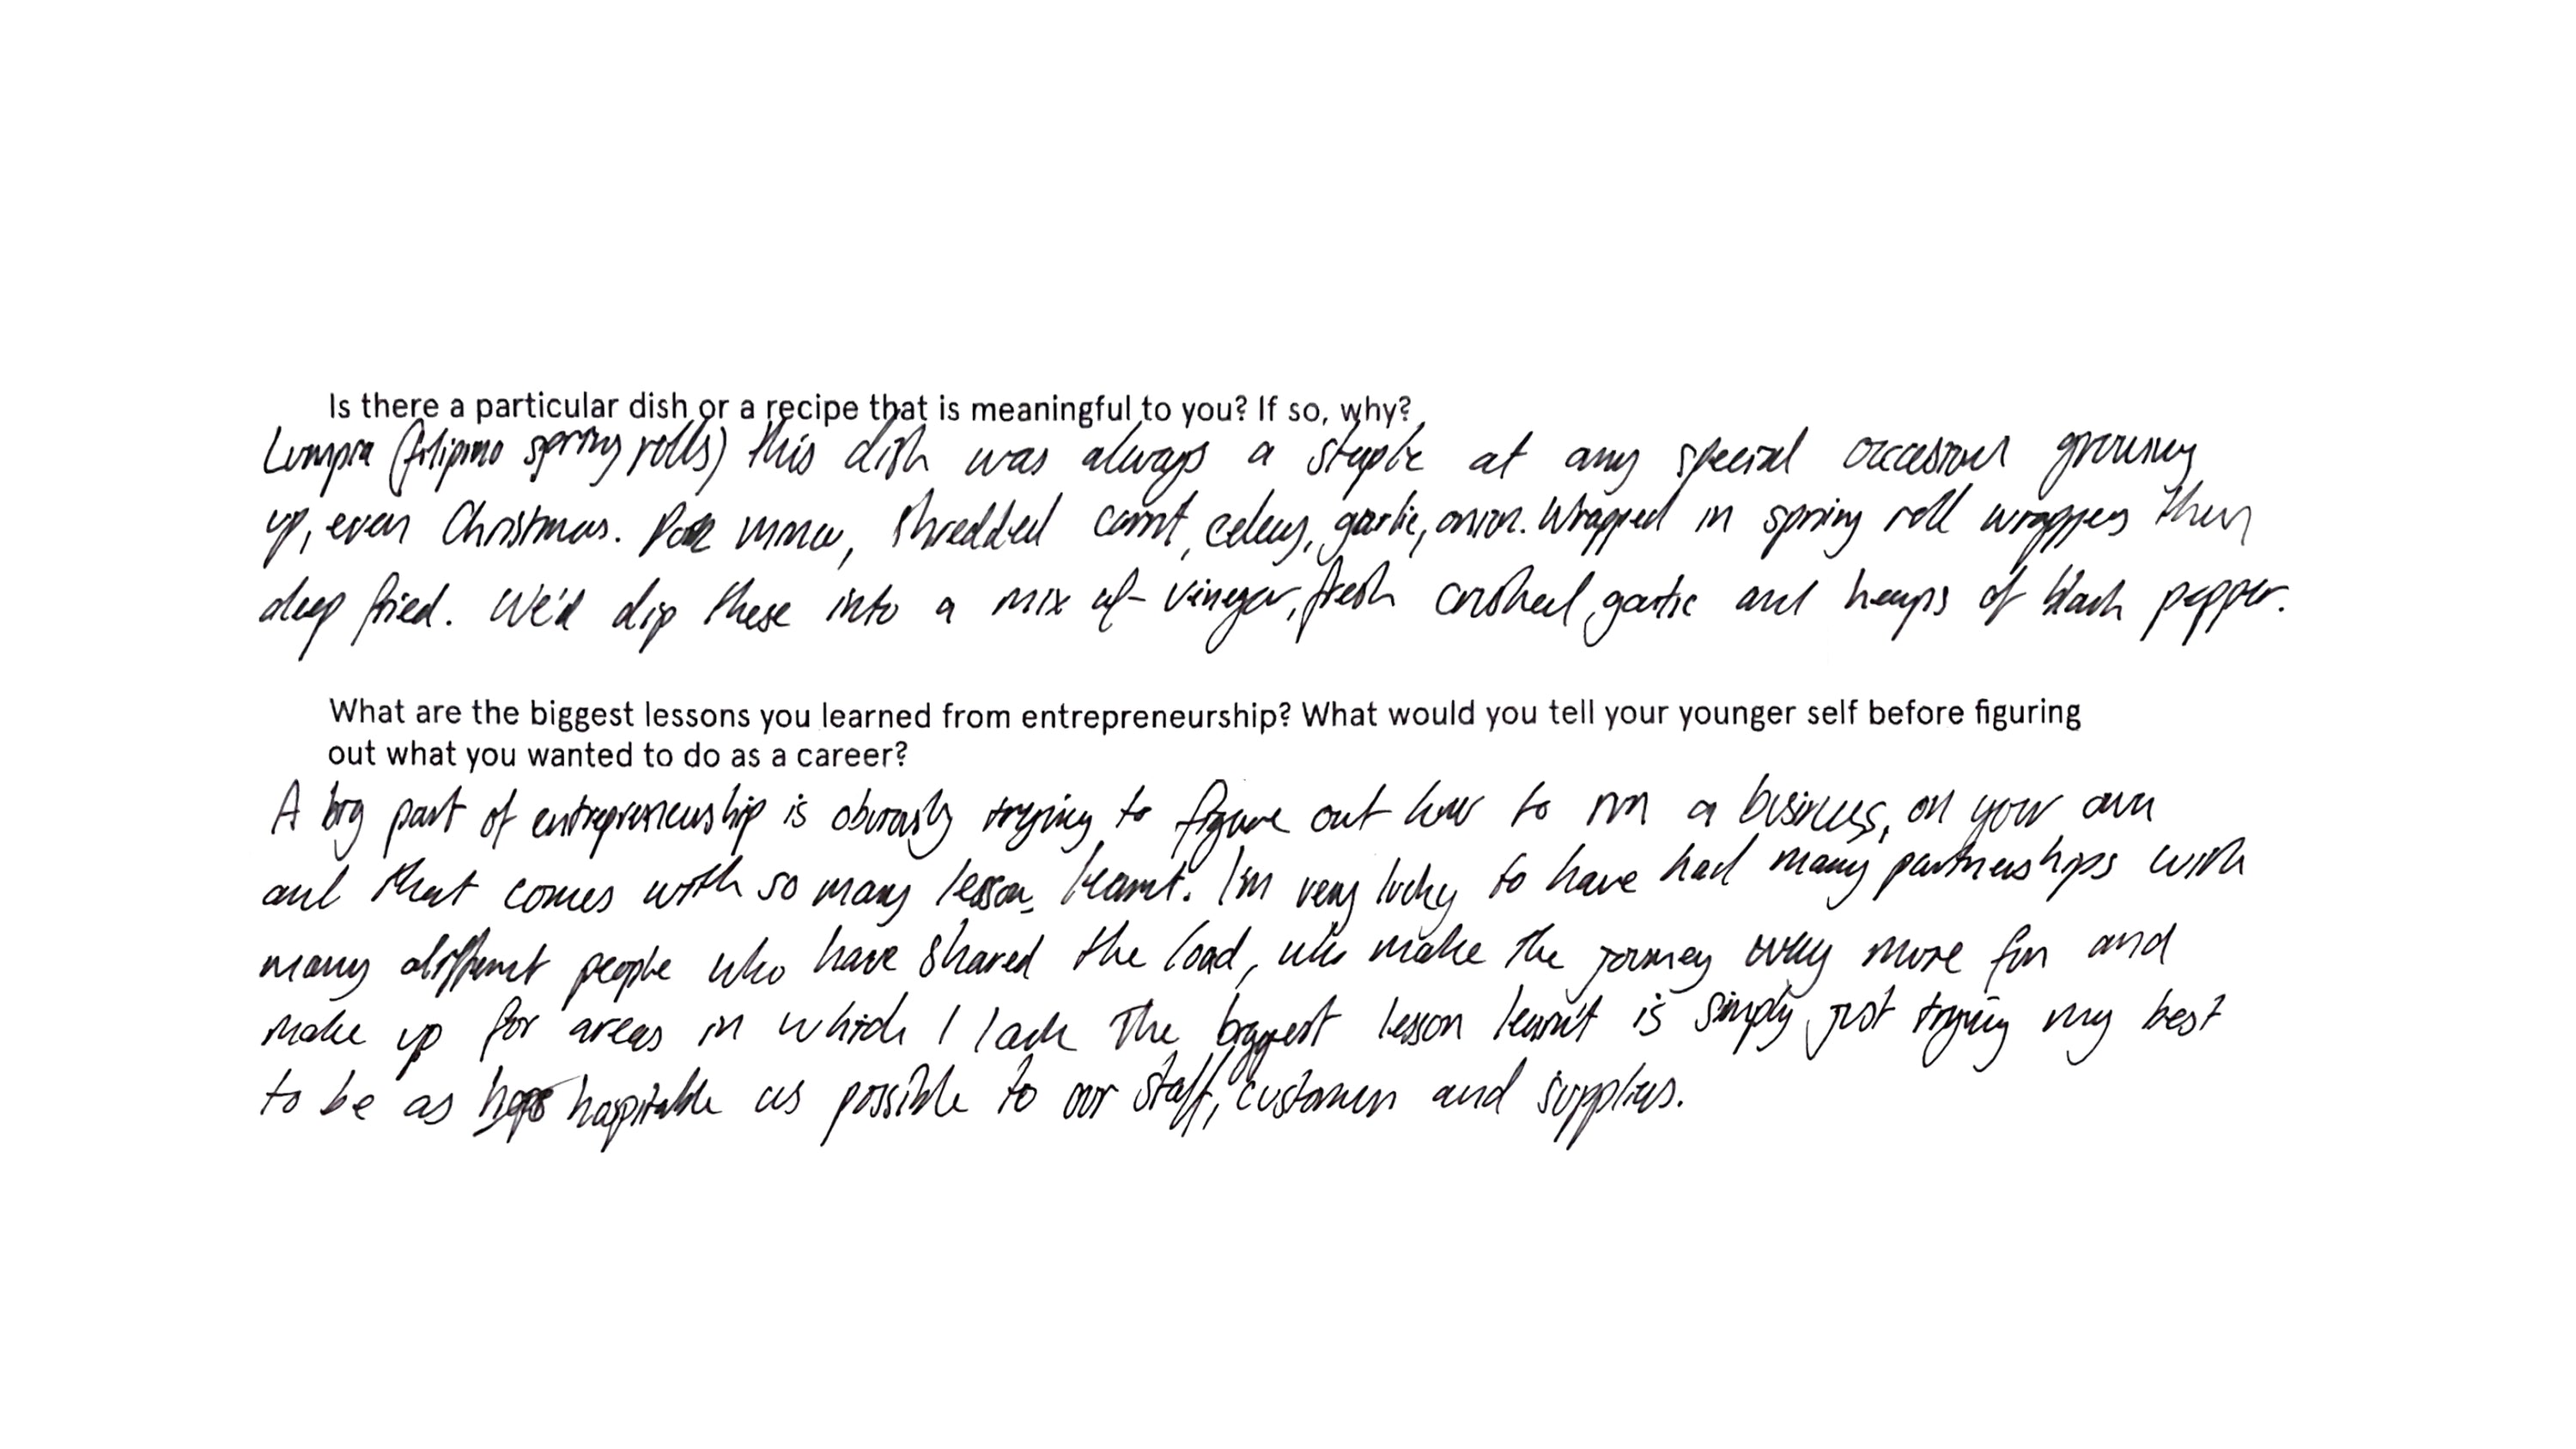 Is there a particular dish or a recipe that is meaningful to you? If so, why?
Lumpia (filipino spring rolls) this dish was always a staple at any special occasion growing
up, even Christmas. Pork mince, shredded carrot, celery, garlic, onion. Wrapped in spring roll wrappers then
deep fried. We'd dip these into a mix of - vinegar, fresh crushed garlic and heaps of black pepper.
What are the biggest lessons you learned from entrepreneurship? What would you tell your younger self before figuring
out what you wanted to do as a career?
A big part of entrepreneurship is obviously trying to figure out how to run a business, on your own
and that comes with so many lessons learnt. I'm very lucky to have had many partnerships with
many different people who have shared the load, who make the journey way more fun and
make up for areas in which I lack The biggest lesson learn't is simply just trying my best
to be as hospitable as possible to our staff, customers and suppliers.